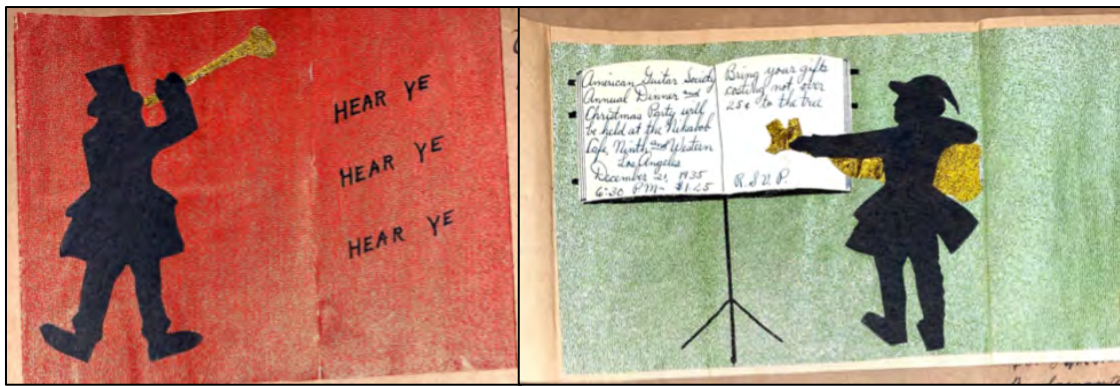 HEAR YE
HEAR YE
HEAR YE
American Guitar Society
Annual Dinner and
Christmas Party will
be held at the Nikabob
Cafe, Ninth and Western
Los Angeles
December 21, 1935
6:30 P.M- $1.25
Bring your gifts
costing not over
25¢ to the tree
R.S.V.P.